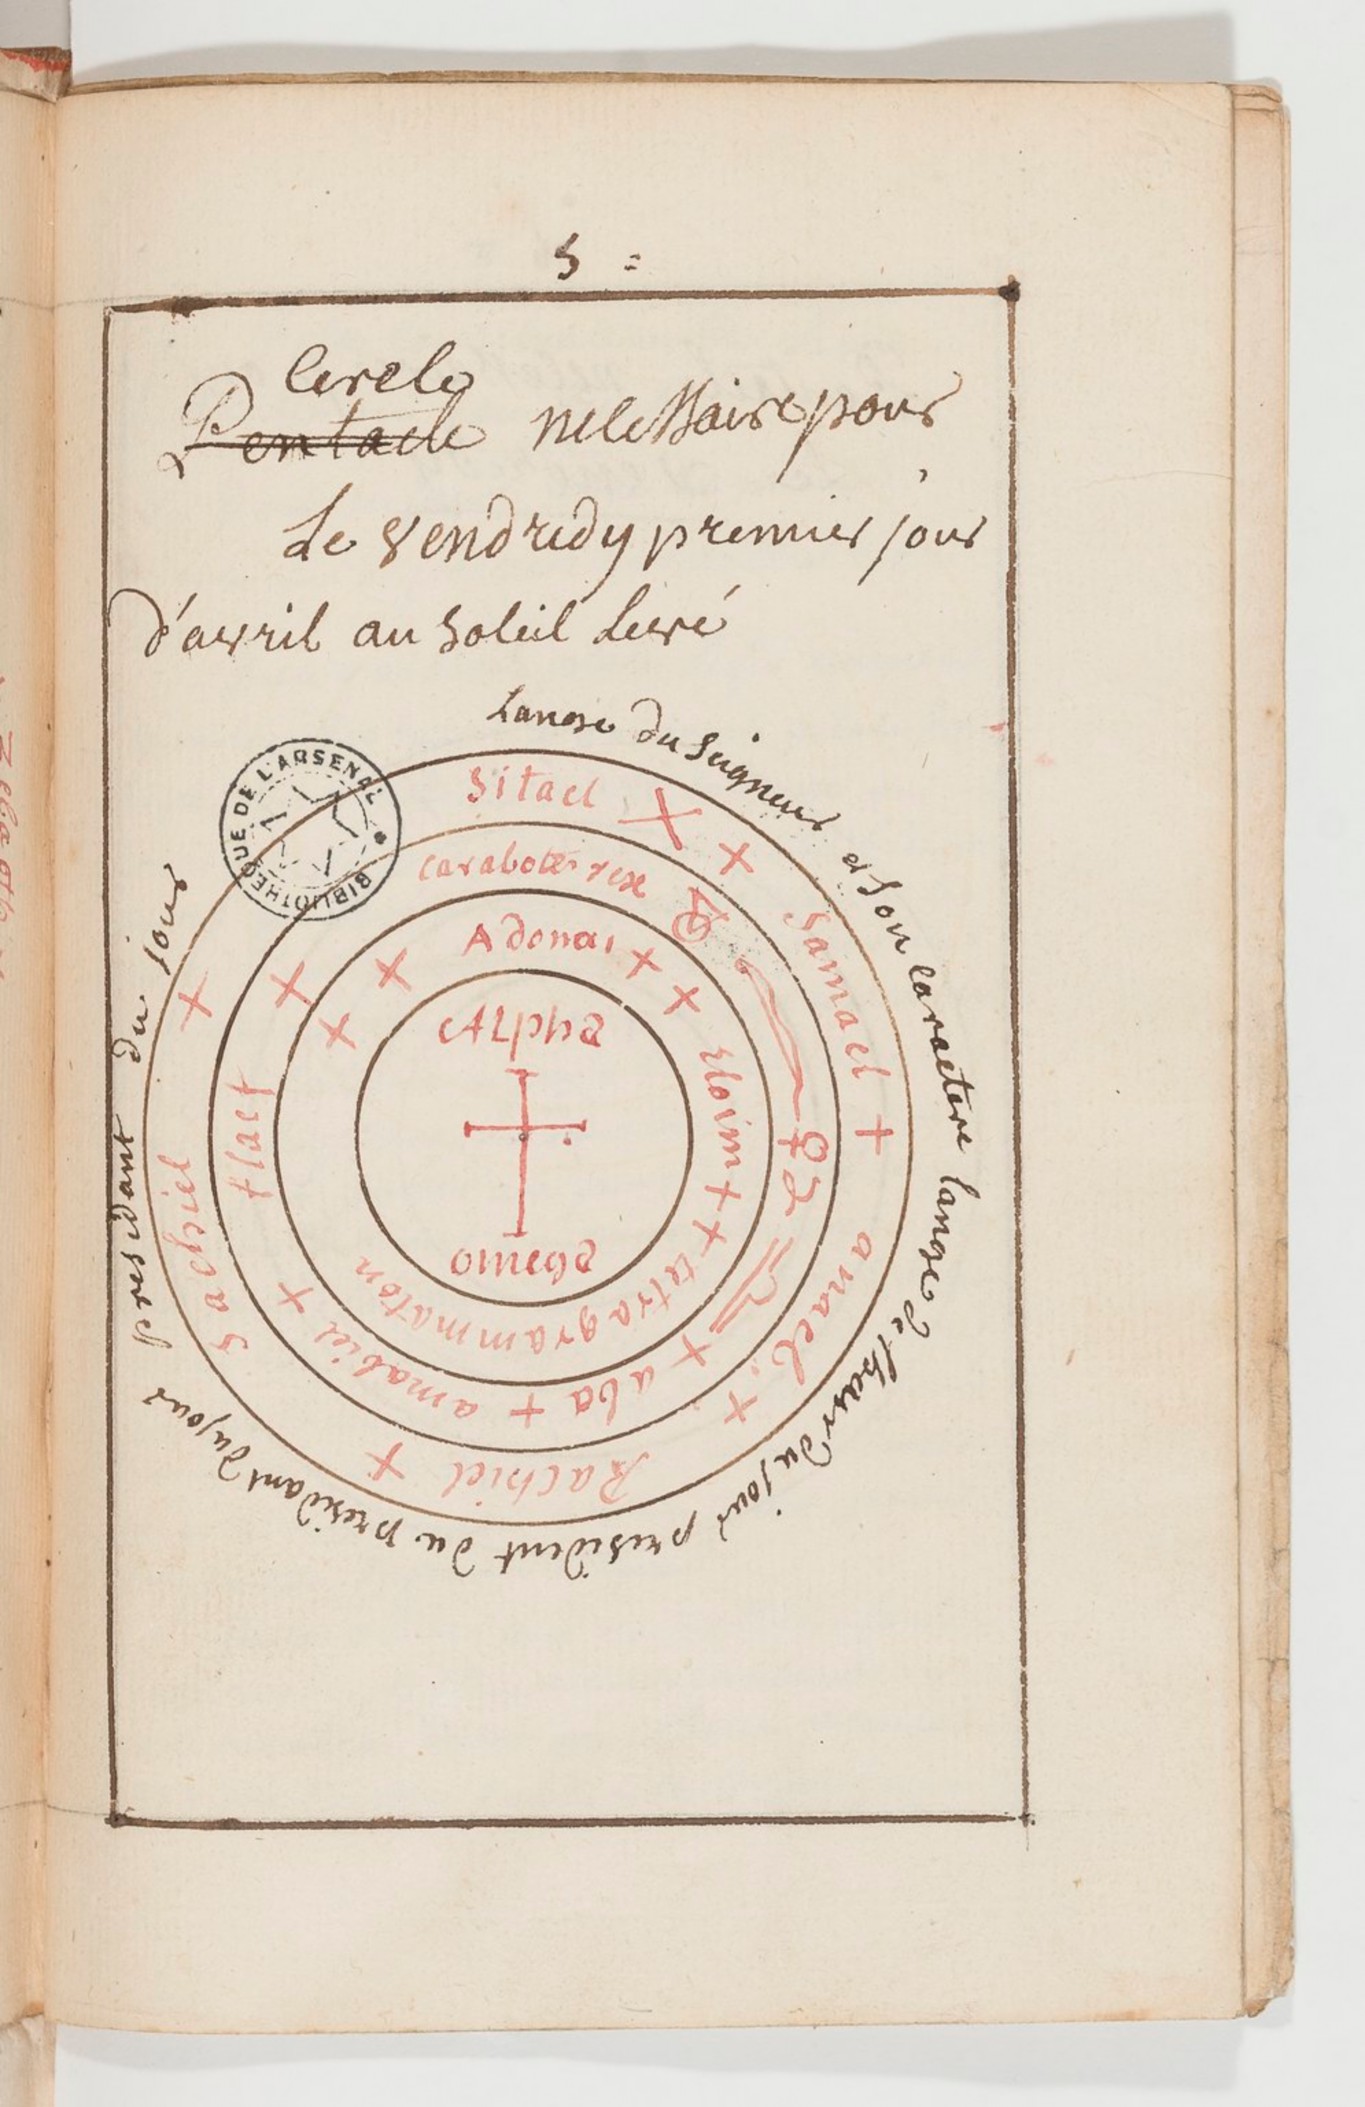 5 =
Cercle
Pentacle necessaire pour
Le vendredy premier jour
d'avril au soleil levé
Lange du seigneur et son caractere lange de lheur du jour president du presidant du jour presidant du jour
BIBLIOTHEQUE DE L'ARSENAL
Sitael
Samael
anael
Rachiel
Sachiel
tlaet
amabiel
aba
Adonai
Eloim
tetragrammaton
Alpha
omega